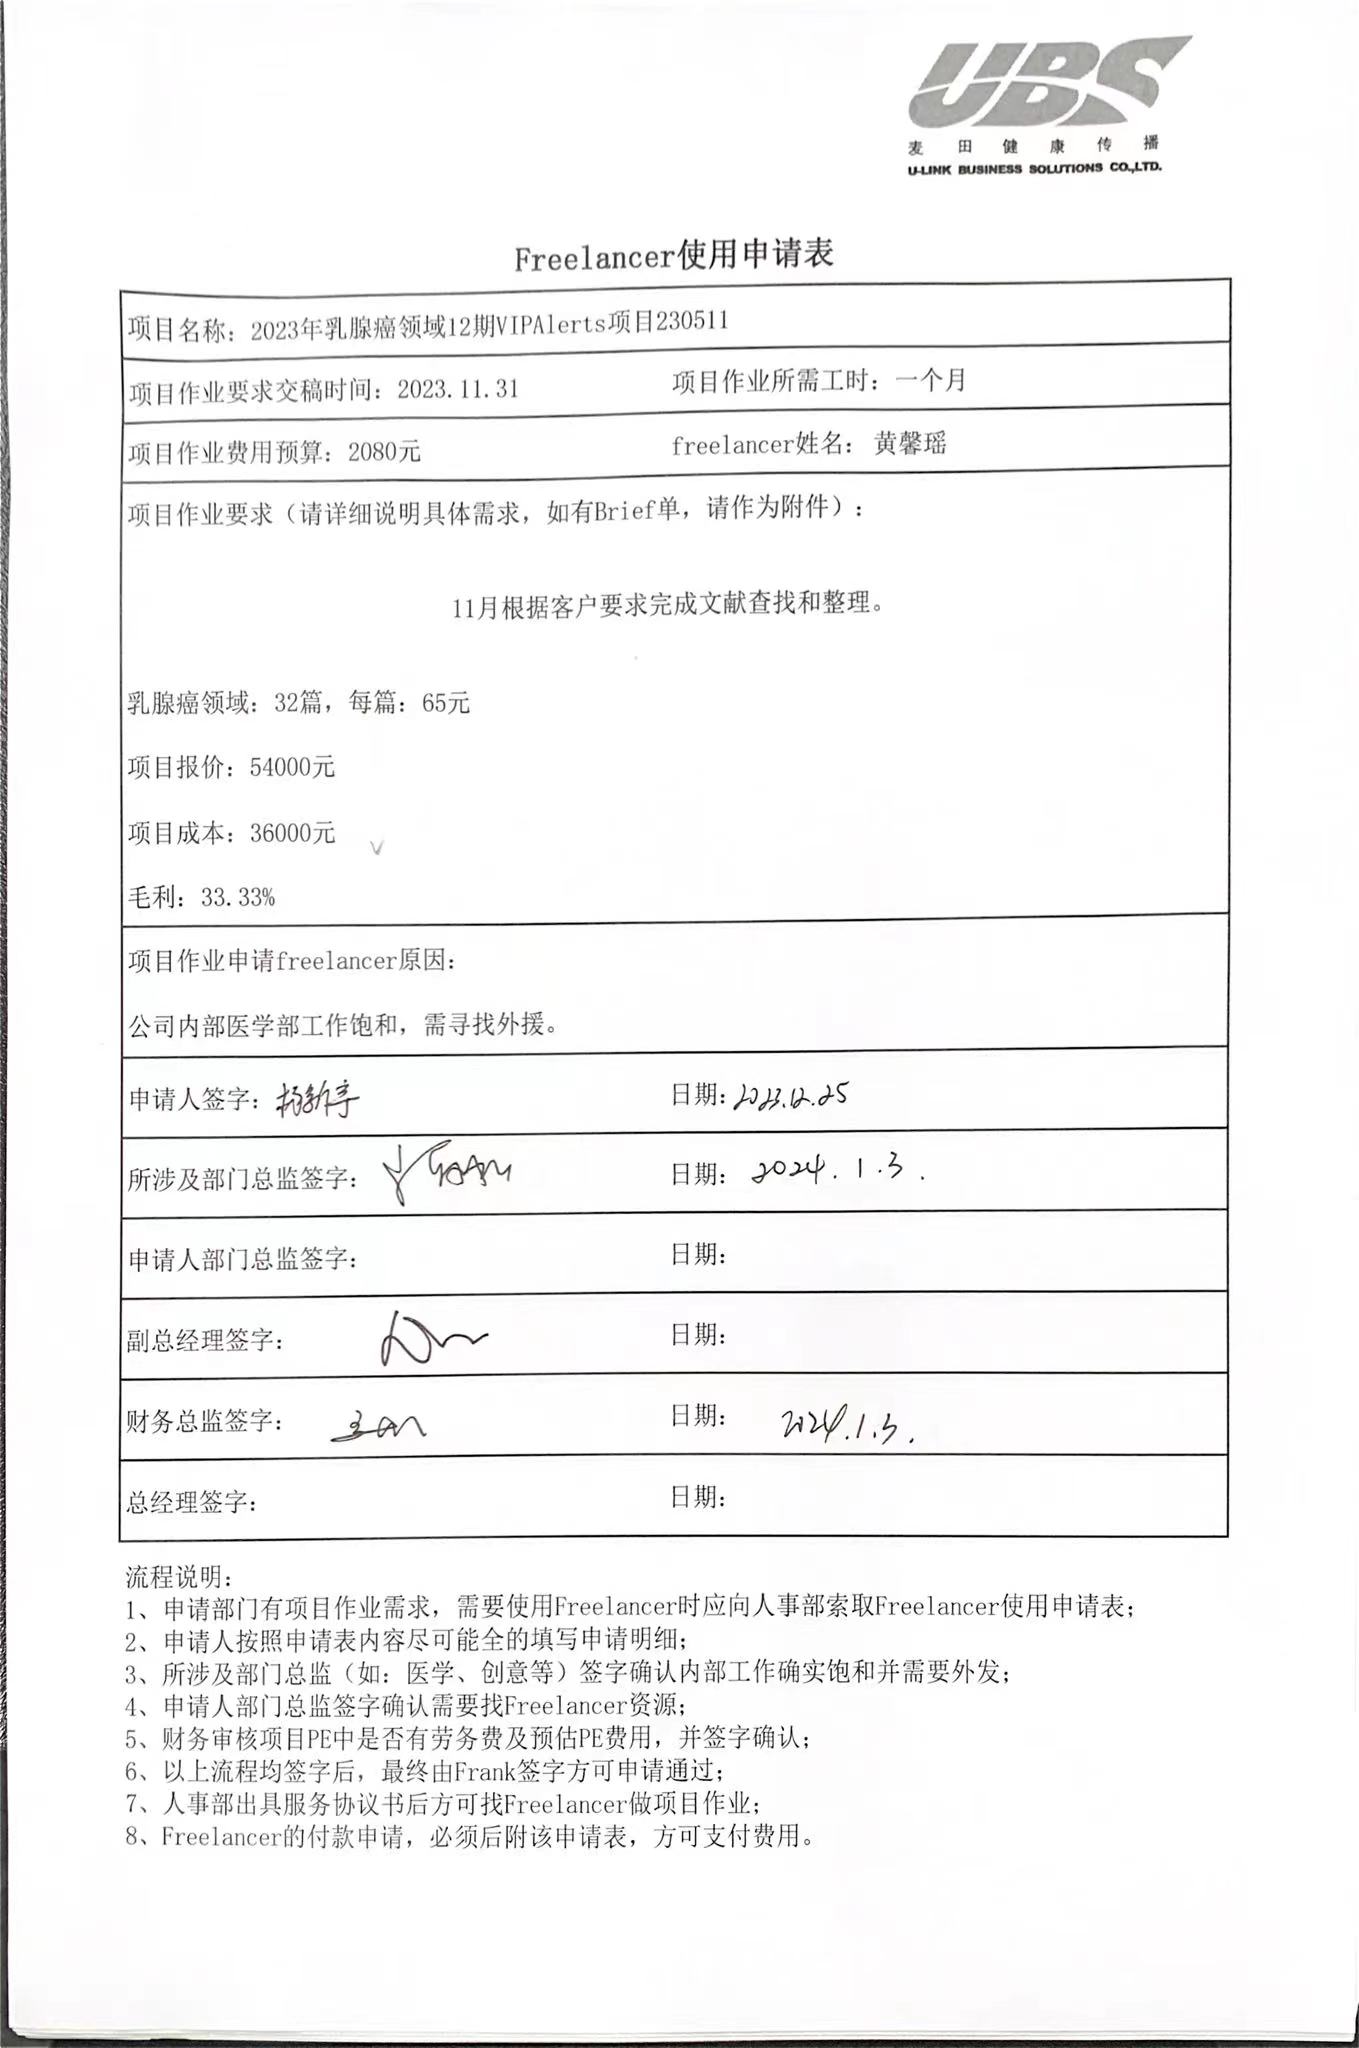 UBS
麦田健康传播
U-LINK BUSINESS SOLUTIONS CO.,LTD.
Freelancer使用申请表
项目名称：2023年乳腺癌领域12期VIPAlerts项目230511
项目作业要求交稿时间：2023.11.31 项目作业所需工时：一个月
项目作业费用预算：2080元 freelancer姓名： 黄馨瑶
项目作业要求（请详细说明具体需求，如有Brief单，请作为附件）：
11月根据客户要求完成文献查找和整理。
乳腺癌领域：32篇，每篇：65元
项目报价：54000元
项目成本：36000元
毛利：33.33%
项目作业申请freelancer原因：
公司内部医学部工作饱和，需寻找外援。
申请人签字： 日期：2023.12.25
所涉及部门总监签字： 日期： 2024.1.3.
申请人部门总监签字： 日期：
副总经理签字： 日期：
财务总监签字： 日期： 2024.1.3.
总经理签字： 日期：
流程说明：
1、申请部门有项目作业需求，需要使用Freelancer时应向人事部索取Freelancer使用申请表；
2、申请人按照申请表内容尽可能全的填写申请明细；
3、所涉及部门总监（如：医学、创意等）签字确认内部工作确实饱和并需要外发；
4、申请人部门总监签字确认需要找Freelancer资源；
5、财务审核项目PE中是否有劳务费及预估PE费用，并签字确认；
6、以上流程均签字后，最终由Frank签字方可申请通过；
7、人事部出具服务协议书后方可找Freelancer做项目作业；
8、Freelancer的付款申请，必须后附该申请表，方可支付费用。